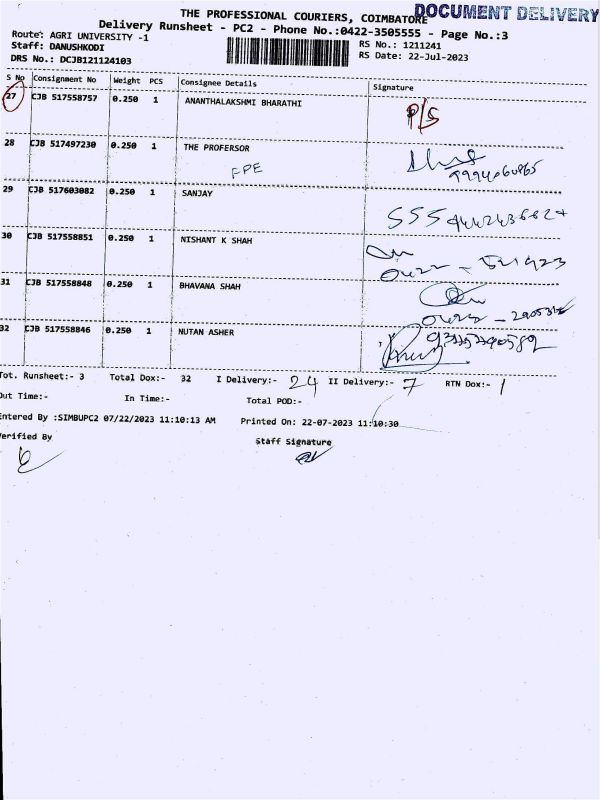 THE PROFESSIONAL COURIERS, COIMBATORE
DOCUMENT DELIVERY
Delivery Runsheet - PC2 - Phone No.:0422-3505555 - Page No.:3
Route: AGRI UNIVERSITY -1
RS No.: 1211241
Staff: DANUSHKODI
RS Date: 22-Jul-2023
DRS No.: DCJB121124103
S No Consignment No Weight PCS Consignee Details Signature
27 CJB 517558757 0.250 1 ANANTHALAKSHMI BHARATHI P/S
28 CJB 517497230 0.250 1 THE PROFERSOR
FPE
29 CJB 517603082 0.250 1 SANJAY
30 CJB 517558851 0.250 1 NISHANT K SHAH
31 CJB 517558848 0.250 1 BHAVANA SHAH
32 CJB 517558846 0.250 1 NUTAN ASHER
Tot. Runsheet:- 3 Total Dox:- 32 I Delivery:- 24 II Delivery:- 7 RTN Dox:- 1
Out Time:- In Time:- Total POD:-
Entered By :SIMBUPC2 07/22/2023 11:10:13 AM Printed On: 22-07-2023 11:10:30
Verified By Staff Signature